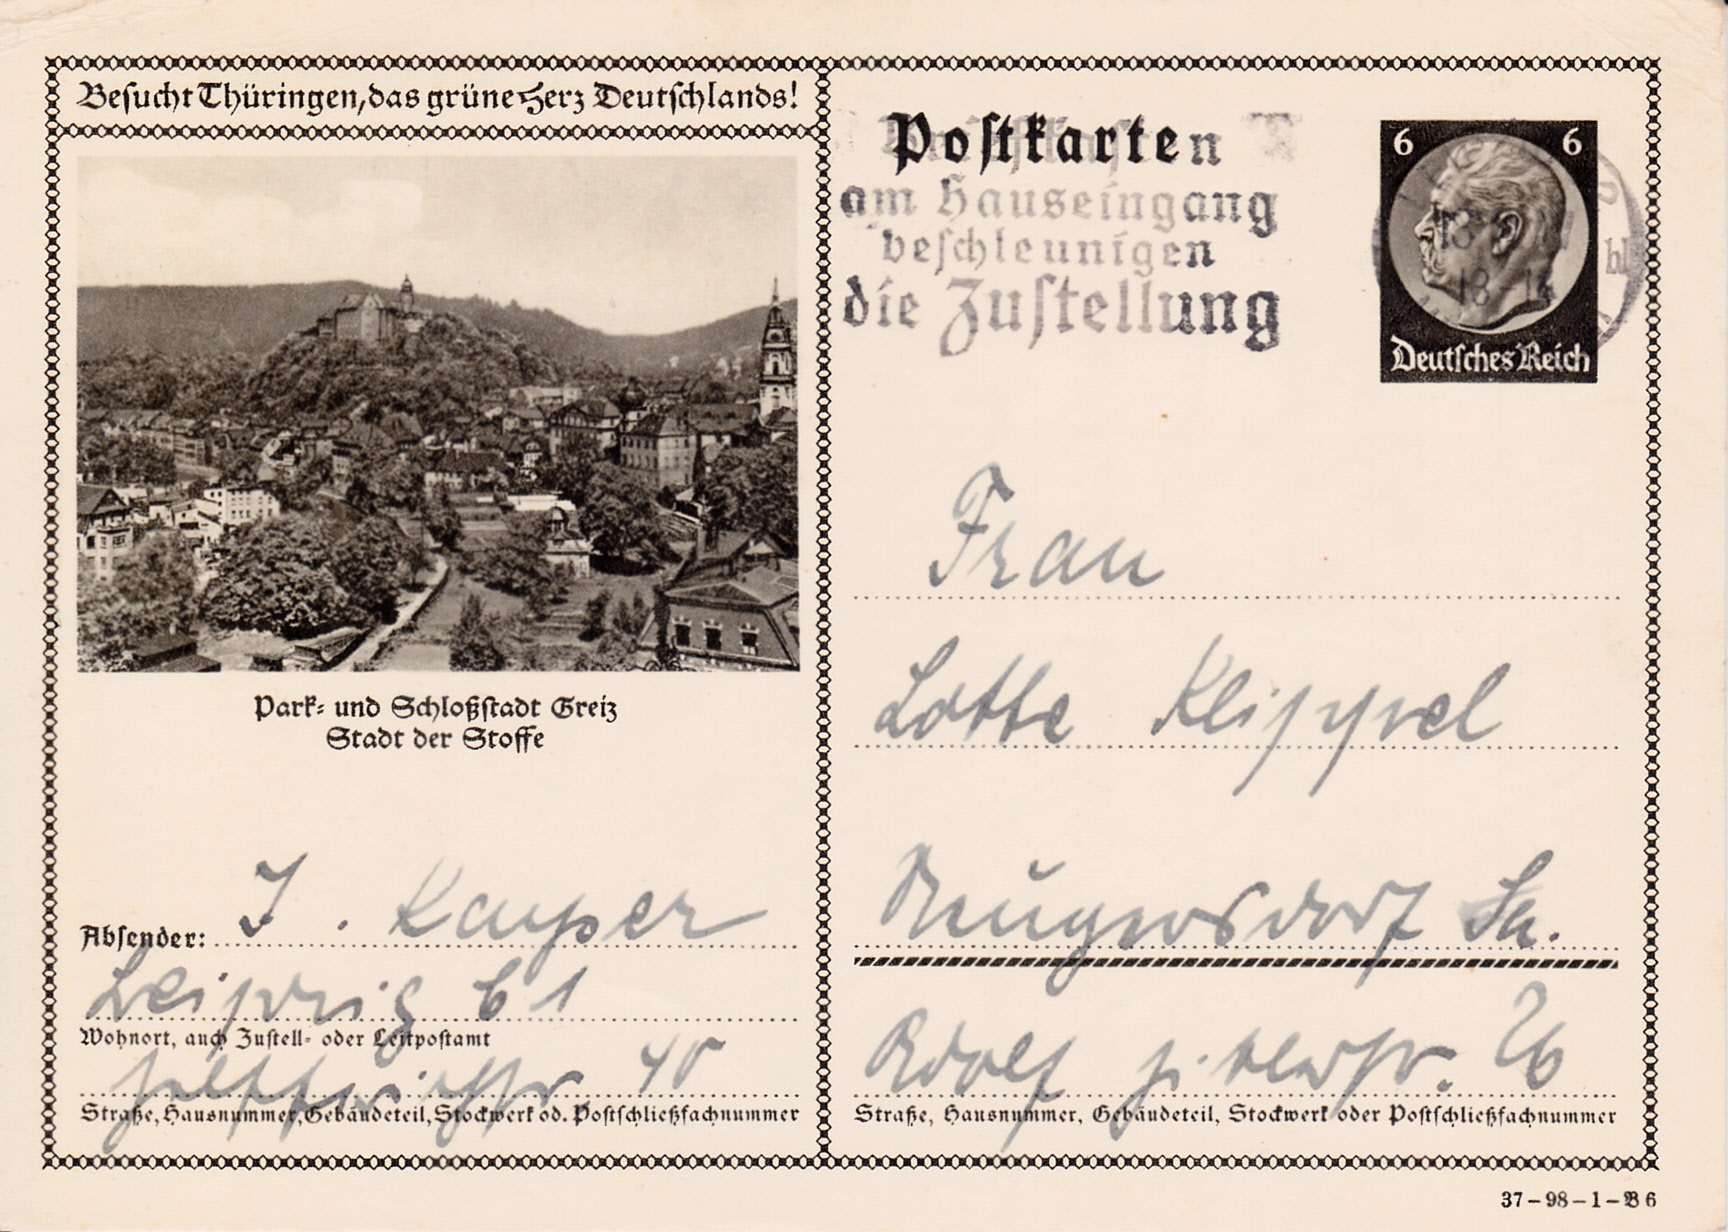 Besucht Thüringen, das grüne Herz Deutschlands!
Park- und Schloßstadt Greiz
Stadt der Stoffe
Absender: J. Kayser
Leipzig C 1
Wohnort, auch Zustell- oder Leitpostamt
40
Straße, Hausnummer, Gebäudeteil, Stockwerk od. Postschließfachnummer
Postkarten
am Hauseingang
beschleunigen
die Zustellung
6 6
Deutsches Reich
Frau
Lotte Klippel
Neugersdorf Sa.
Adolf Hitlerstr. 26
Straße, Hausnummer, Gebäudeteil, Stockwerk oder Postschließfachnummer
37-98-1-B 6